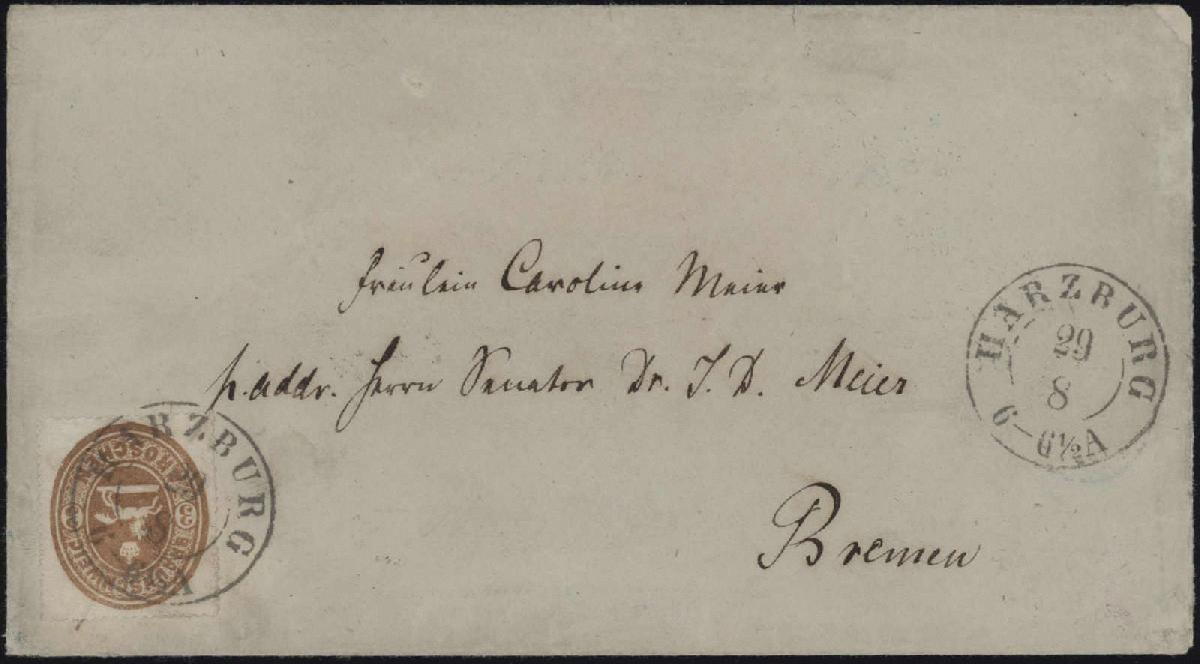 Fräulein Caroline Meier
p. addr. Herrn Senator Dr. J. D. Meier
Bremen
HARZBURG
29
8
6–6½A
HARZBURG
GROSCHEN
BRAUNSCHWEIG
3
3